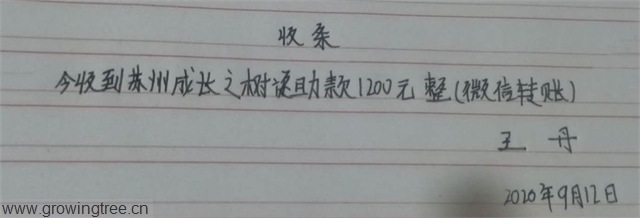 收条
今收到苏州成长之树误助款1200元整(微信转账)
王丹
2020年9月12日
www.growingtree.cn